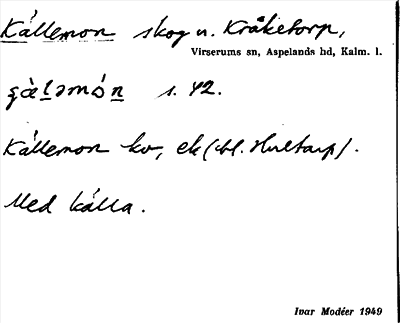 Källemon skog n. Kråketorp,
Virserums sn, Aspelands hd, Kalm. l.
s. 42.
Källemon ko, ek (bl. Hultarp).
Med källa.
Ivar Modéer 1949